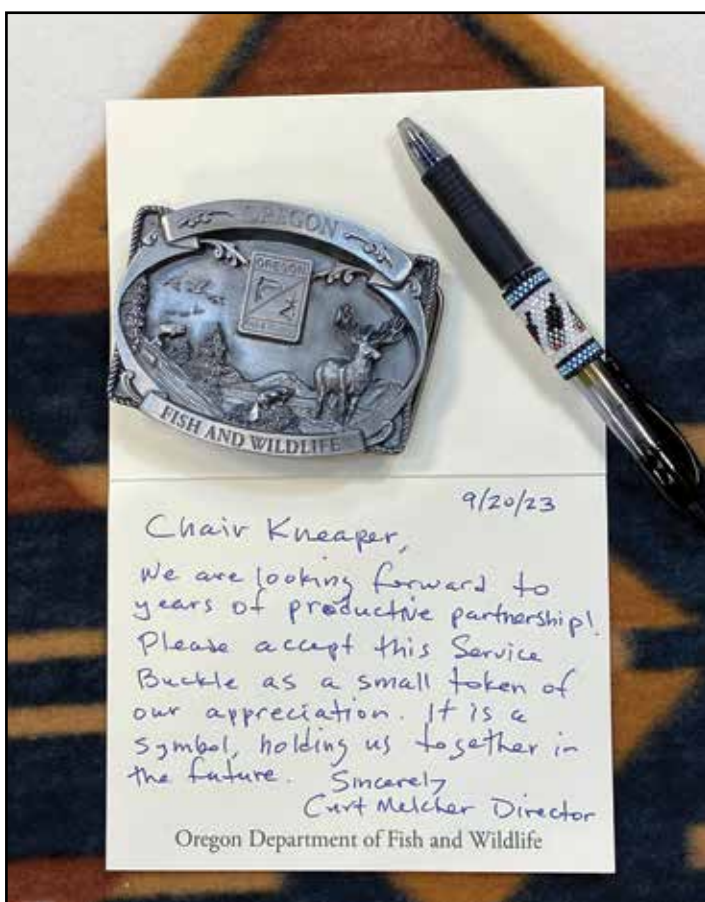 OREGON
OREGON
FISH AND WILDLIFE
9/20/23
Chair Kneaper,
We are looking forward to
years of productive partnership!
Please accept this Service
Buckle as a small token of
our appreciation. It is a
symbol, holding us together in
the future. Sincerely
Curt Melcher Director
Oregon Department of Fish and Wildlife